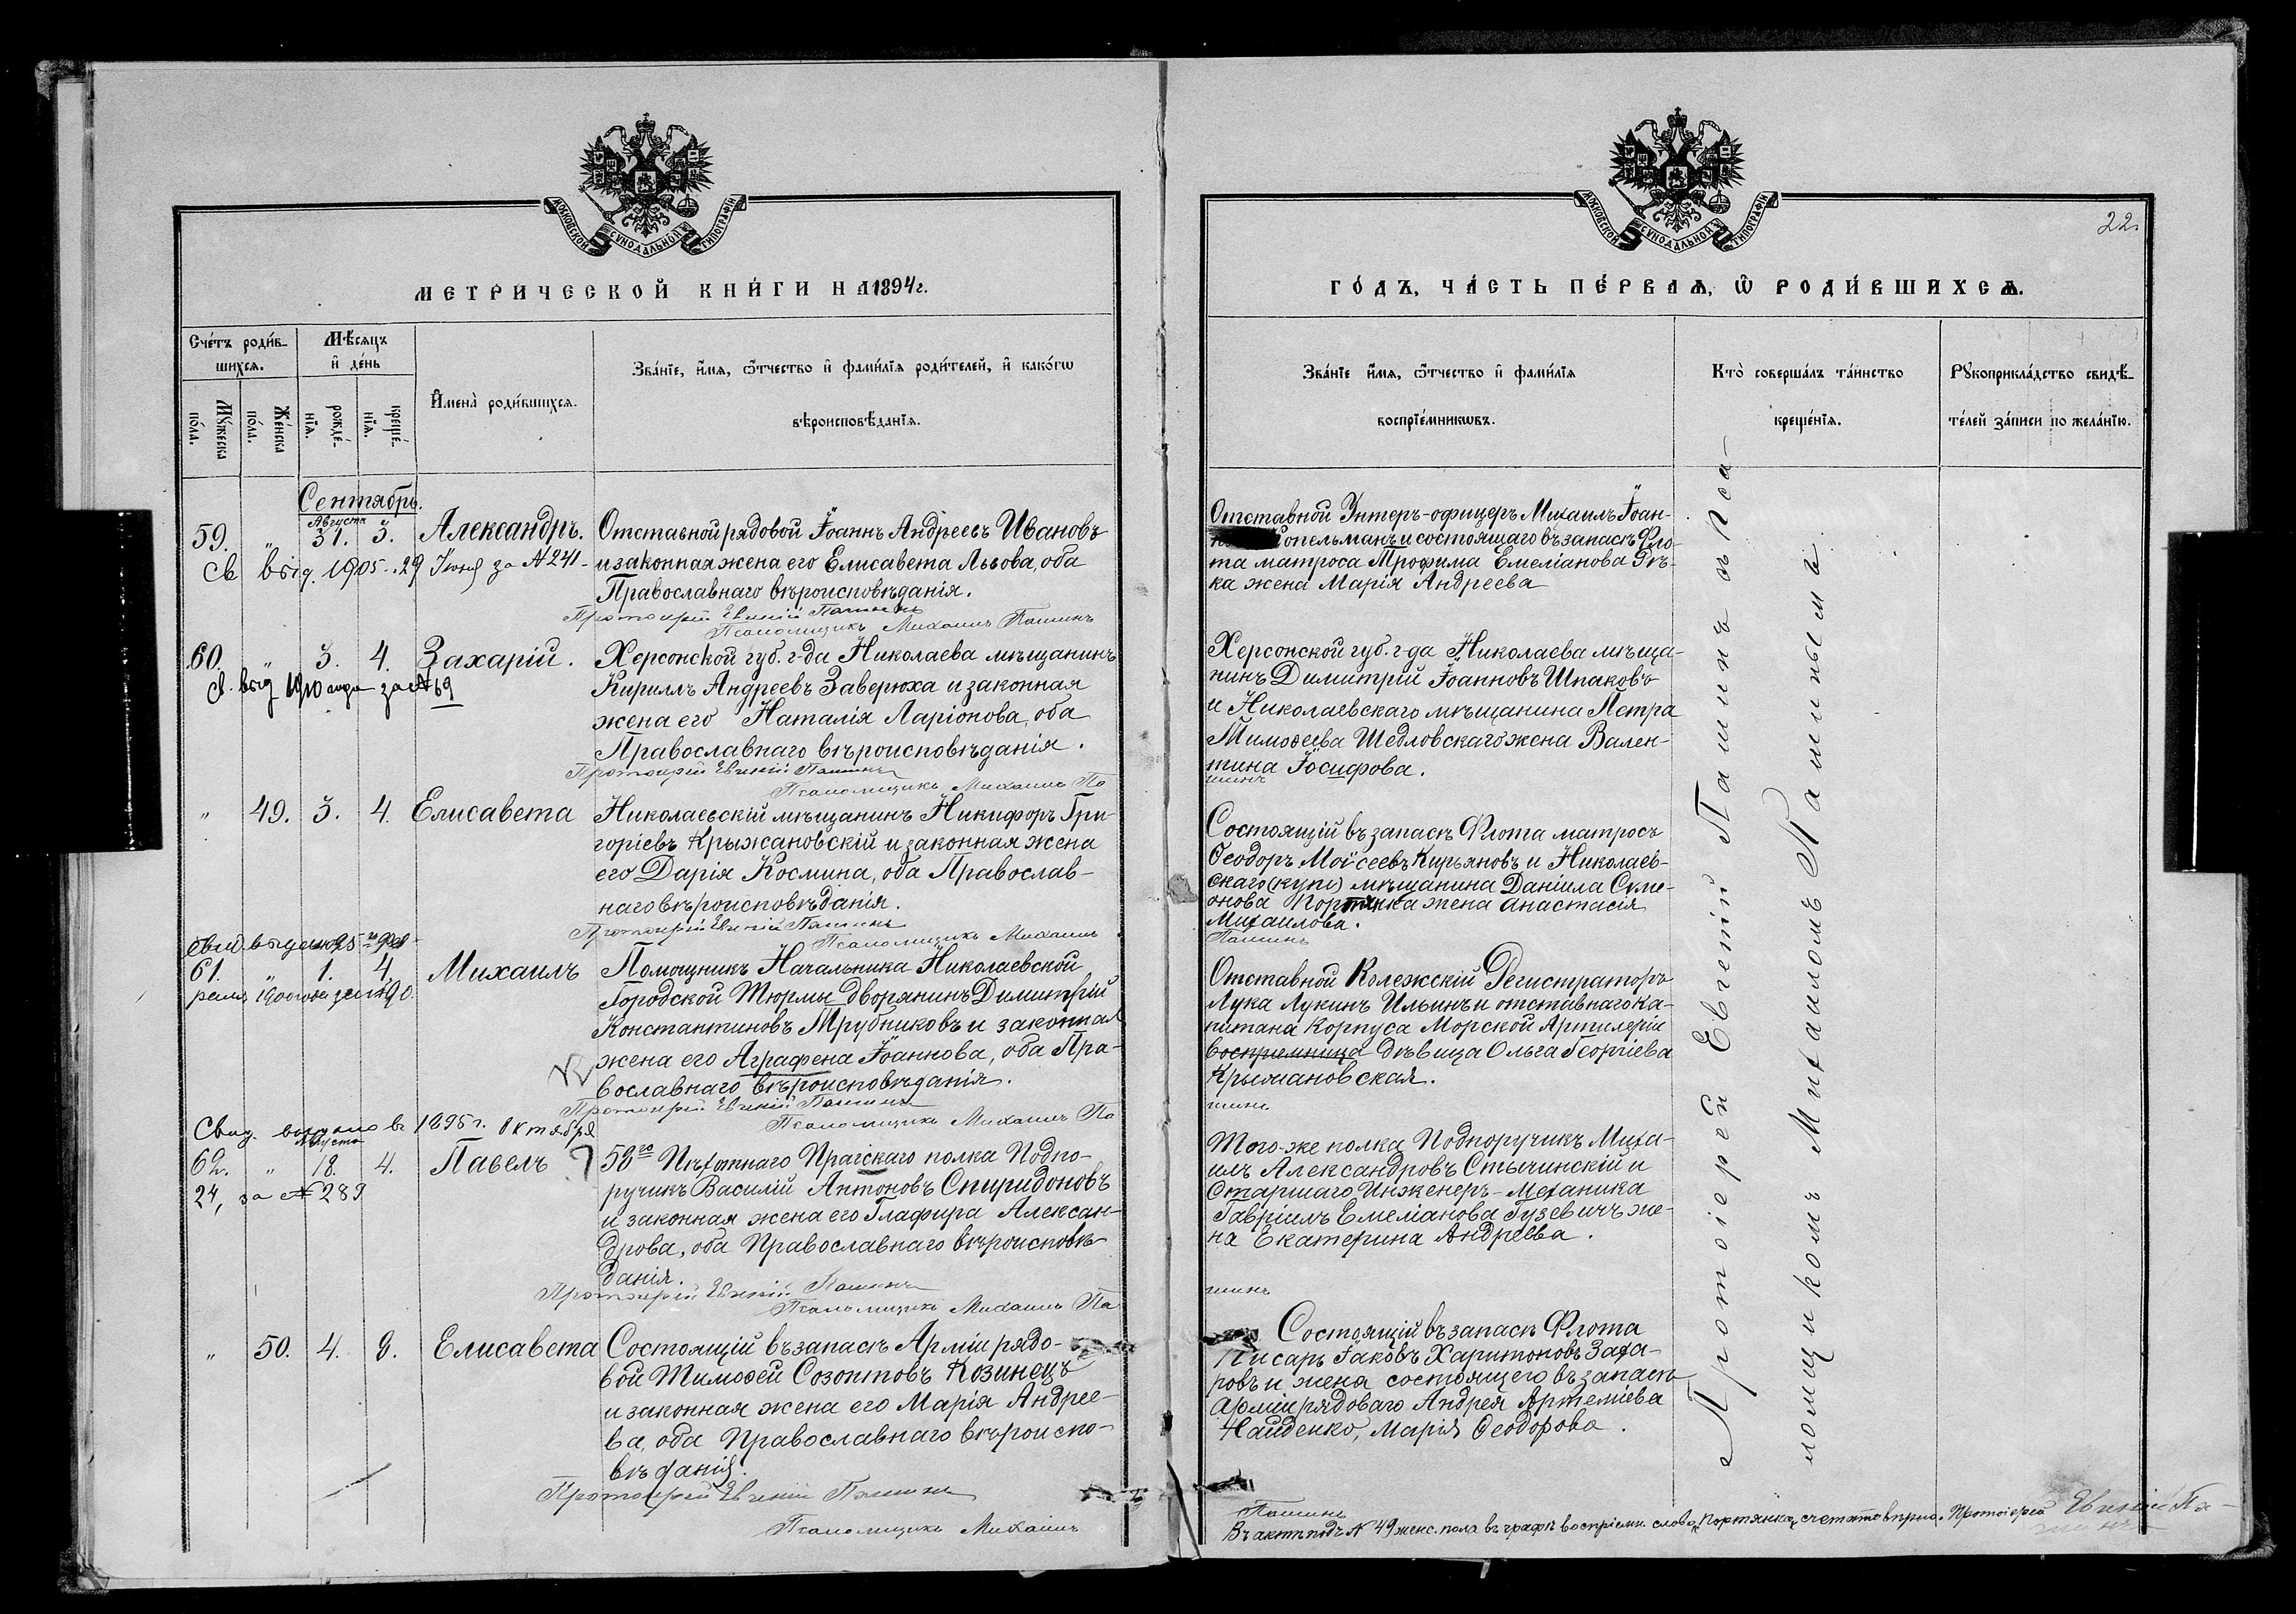 МОСКОВСКОЙ СѴНОДАЛЬНОЙ ТИПОГРАФІИ
МЕТРИ́ЧЕСКОЙ КНИ́ГИ НА 1894 г.
Сче́тъ роди́в-
шихсѧ.
Мѣ́сѧцъ
и҆ де́нь
Мꙋ́жеска
по́ла.
Же́нска
по́ла.
рожде́-
нїѧ.
креще́-
нїѧ.
И҆мена̀ роди́вшихсѧ.
Зва́нїе, и҆́мѧ, ѻ҆́тчество и҆ фами́лїѧ роди́телей, и҆ како́гѡ
вѣроисповѣ́данїѧ.
Сентябрь.
Августа
59. " 31. 3. Александръ. Отставной рядовой Іоаннъ Андреевъ Ивановъ
Св выд. 1905. 29 Іюня за № 241 и законная жена его Елисавета Львова, оба
Православнаго вѣроисповѣданія.
Протоіерей Евгеній Пашинъ
Псаломщикъ Михаилъ Пашинъ
60. " 3. 4. Захарій. Херсонской губ. г-да Николаева мѣщанинъ
Св. выд 1910 года за № 69 Кириллъ Андреевъ Заверюха и законная
жена его Наталія Ларіонова, оба
Православнаго вѣроисповѣданія.
Протоіерей Евгеній Пашинъ
Псаломщикъ Михаилъ Па
" 49. 3. 4. Елисавета Николаевскій мѣщанинъ Никифоръ Гри-
горіевъ Крыжановскій и законная жена
его Дарія Космина, оба Православ-
наго вѣроисповѣданія.
Протоіерей Евгеній Пашинъ
Псаломщикъ Михаилъ
61. " 1. 4. Михаилъ Помощникъ Начальника Николаевской
Городской Тюрмы дворянинъ Димитрій
Константиновъ Трубниковъ и законная
жена его Аграфена Іоаннова, оба Пра-
вославнаго вѣроисповѣданія.
Протоіерей Евгеній Пашинъ
Псаломщикъ Михаилъ Па
Свид. выдано въ 1895 г. Октября
Августа
62. " 18. 4. Павелъ 58го Пѣхотнаго Прагскаго полка Подпо-
24, за № 289 ручикъ Василій Антоновъ Спиридоновъ
и законная жена его Глафира Алексан-
дрова, оба Православнаго вѣроисповѣ-
данія.
Протоіерей Евгеній Пашинъ
Псаломщикъ Михаилъ Па
" 50. 4. 9. Елисавета Состоящій въ запасѣ Арміи рядо-
вой Тимоѳей Созонтовъ Козинецъ
и законная жена его Марія Андрее-
ва, оба Православнаго вѣроиспо-
вѣданія.
Протоіерей Евгеній Пашинъ
Псаломщикъ Михаилъ
22.
МОСКОВСКОЙ СѴНОДАЛЬНОЙ ТИПОГРАФІИ
ГО́ДЪ, ЧА́СТЬ ПЕ́РВАѦ, Ѡ҆ РОДИ́ВШИХСѦ.
Зва́нїе и҆́мѧ, ѻ҆́тчество и҆ фами́лїѧ
воспрїе́мникѡвъ.
Кто̀ соверша́лъ та́инство
креще́нїѧ.
Рꙋкоприкла́дство свидѣ́-
телей за́писи по жела́нїю.
Отставной Унтеръ-офицеръ Михаилъ Іоан-
опельманъ и состоящаго въ запасѣ Фло-
та матроса Трофима Емеліанова
ка жена Марія Андреева
Херсонской губ. г-да Николаева мѣща-
нинъ Димитрій Іоанновъ Шпаковъ
и Николаевскаго мѣщанина Петра
Тимоѳеева Шедловскаго жена Вален-
тина Іосифова.
шинъ
Состоящій въ запасѣ Флота матросъ
Ѳеодоръ Моѵсеевъ Кирьяновъ и Николаев-
скаго (купе) мѣщанина Даніила Симе-
онова Портянка жена Анастасія
Михаилова.
Пашинъ
Отставной Колежскій Регистраторъ
Лука Лукинъ Ильинъ и отставнаго ка-
питана Корпуса Морской Артилеріи
воспріемница дѣвица Ольга Георгіева
Крыжановская.
шинъ
Того-же полка Подпоручикъ Миха-
илъ Александровъ Стычинскій и
Старшаго Инженеръ-Механика
Гавріилъ Емеліанова Гузевичъ же-
на Екатерина Андреева.
шинъ
Состоящій въ запасѣ Флота
Писарь Іаковъ Харитоновъ Заха-
ровъ и жена состоящего въ запасѣ
Арміи рядоваго Андрея Артеміева
Найденко, Марія Ѳеодорова.
Пашинъ
Протоіерей Евгеній Пашинъ съ Пса-
ломщикомъ Михаиломъ Пашинымъ.
Въ актѣ подъ № 49 женс. пола въ графѣ воспріемн. слово "Портянка" считать вѣрно. Протоіерей Евгеній Па-
шинъ